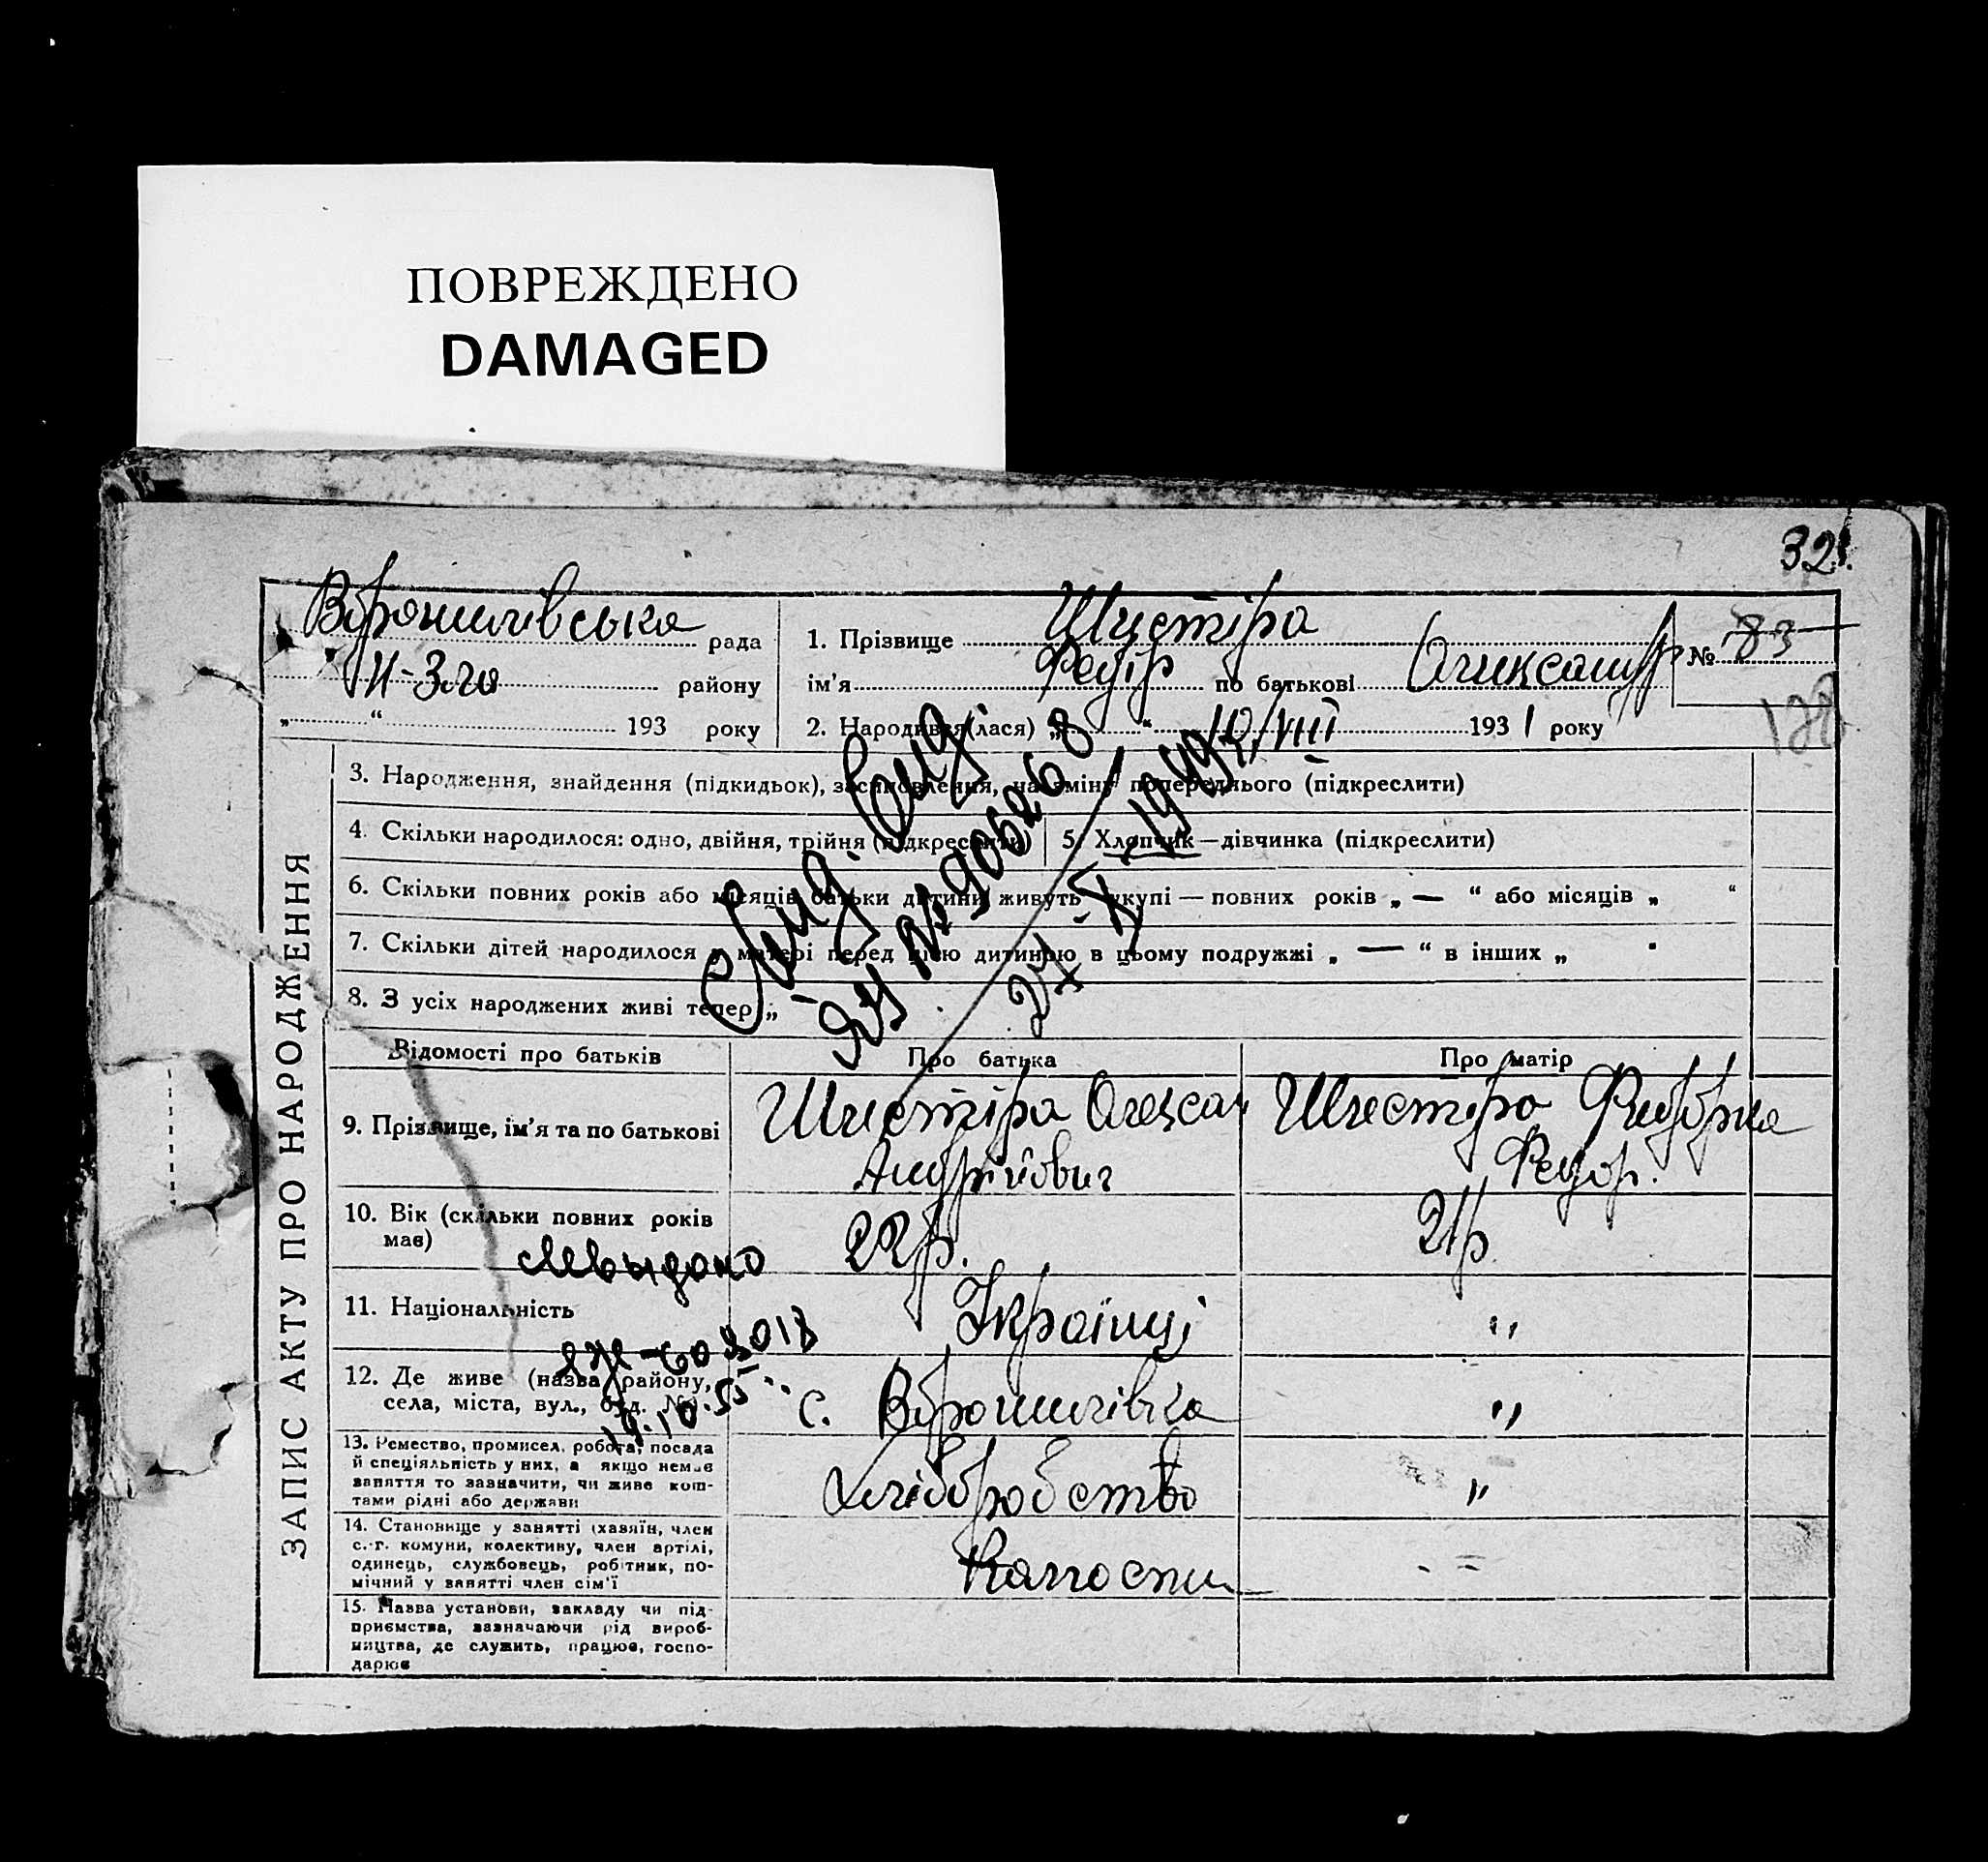 ПОВРЕЖДЕНО
DAMAGED
321.
рада
району
„ “ 193 року
1. Прізвище
ім'я Федір по батькові
№ 83
2. Народився(лася) „ “ 10/VIII 1931 року
ЗАПИС АКТУ ПРО НАРОДЖЕННЯ
3. Народження, знайдення (підкидьок), засиновлення, на зміну попереднього (підкреслити)
4. Скільки народилося: одно, двійня, трійня (підкреслити)
5. Хлопчик—дівчинка (підкреслити)
6. Скільки повних років або місяців батьки дитини живуть укупі — повних років „ — “ або місяців „ “
7. Скільки дітей народилося у матері перед цією дитиною в цьому подружжі „ — “ в інших „
8. З усіх народжених живі тепер „
Відомості про батьків
Про батька
Про матір
9. Прізвище, ім'я та по батькові
Андрійович
Федор.
10. Вік (скільки повних років
має)
22р.
21р.
11. Національність
Українці
„
12. Де живе (назва району,
села, міста, вул., буд. №)
с.
„
19.10.55
13. Ремество, промисел, робота, посада
й спеціяльність у них, а якщо немає
заняття то зазначити, чи живе кош-
тами рідні або держави
Хліборобство
„
14. Становище у занятті (хазяїн, член
с.-г. комуни, колективу, член артілі,
одинець, службовець, робітник, по-
мічний у занятті член сім'ї
15. Назва установи, закладу чи під-
приємства, зазначаючи рід вироб-
ництва, де служить, працює, госпо-
дарює